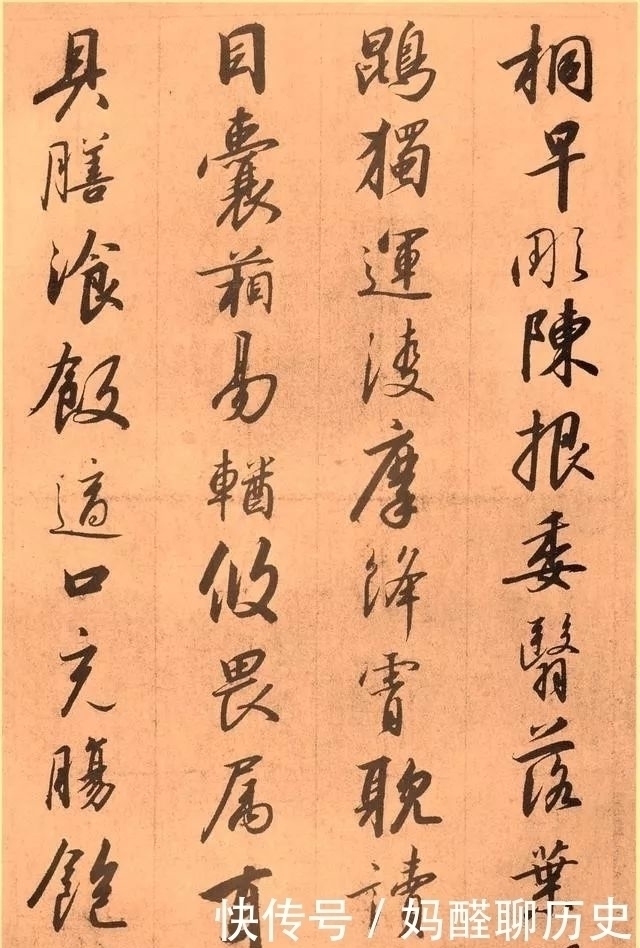 桐早彫陳根委翳落葉
鵾獨運淩摩絳霄耽讀
目囊箱易輶攸畏属耳
具膳湌飯適口充腸飽
快传号/妈醛聊历史